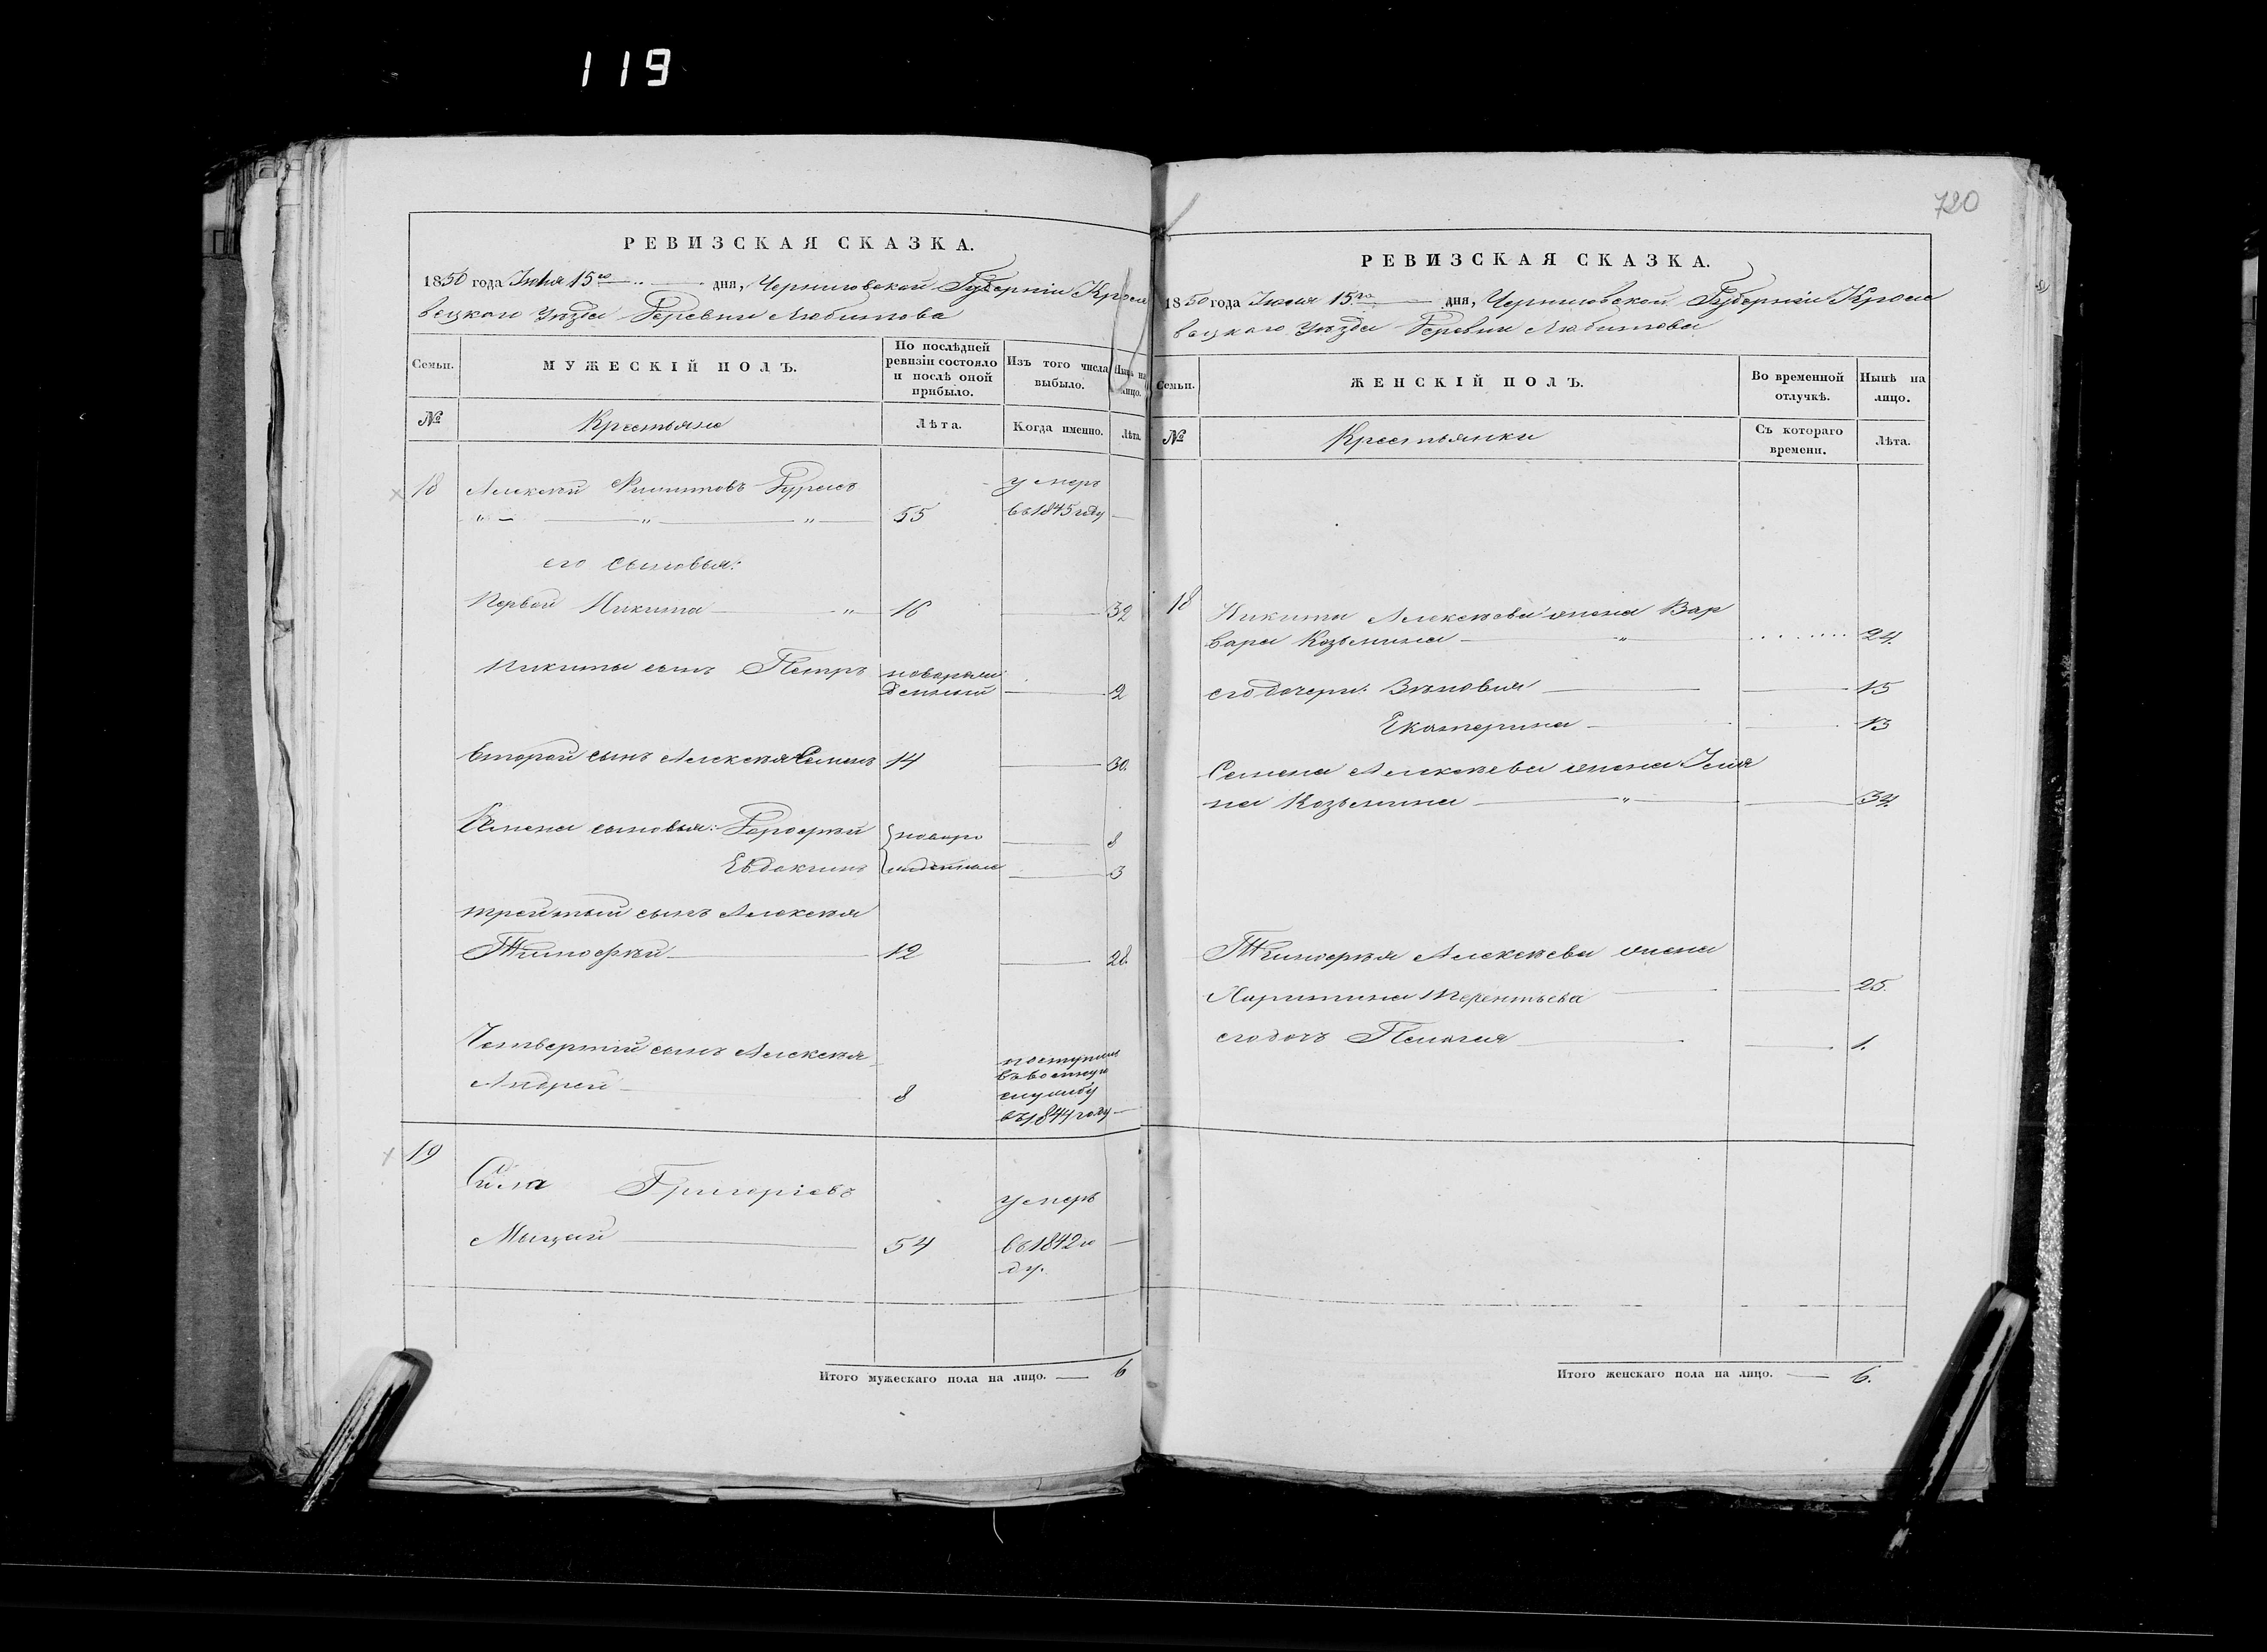 119
720
РЕВИЗСКАЯ СКАЗКА.
1850 года Іюля 15го дня, Черниговской Губерніи Кроле
вецкаго уѣзда Деревни Любитова
Семьи.
МУЖЕСКІЙ ПОЛЪ.
По послѣдней
ревизіи состояло
и послѣ оной
прибыло.
Изъ того числа
выбыло.
Нынѣ на
лицо.
№
Крестьяне
Лѣта.
Когда именно.
Лѣта.
18
Алексѣй Филиповъ
умеръ
55
въ 1845 году
его сыновья:
Первой Никита
16
32
Никиты сынъ Петръ
новорож
денный
2
второй сынъ Алексѣя Семенъ
14
30.
Семена сыновья: Дорофей
новоро
8
Евдокимъ
жденные
3
третий сынъ Алексѣя
Тимофей
12
28
Четвертый сынъ Алексѣя
Андрей
8
поступилъ
въ военную
службу
въ 1844 году
19
Сила Григоріевъ
умеръ
54
въ 1842 го
ду.
Итого мужескаго пола на лицо. 6
РЕВИЗСКАЯ СКАЗКА.
1850 года Іюля 15го дня, Черниговской Губерніи Кроле
вецкаго уѣзда Деревни Любитова
Семьи.
ЖЕНСКІЙ ПОЛЪ.
Во временной
отлучкѣ.
Нынѣ на
лицо.
№
Крестьянки
Съ котораго
времени.
Лѣта.
18
Никиты Алексѣева жена Вар
вара Козьмина
24.
его дочери: Зѣновия
15
Екатерина
13
Семена Алексѣева жена Улія
на Козьмина
34.
Тимофея Алексѣева жена
Харитина Терентьева
25.
его дочь Пелагея
1.
Итого женскаго пола на лицо. 6.